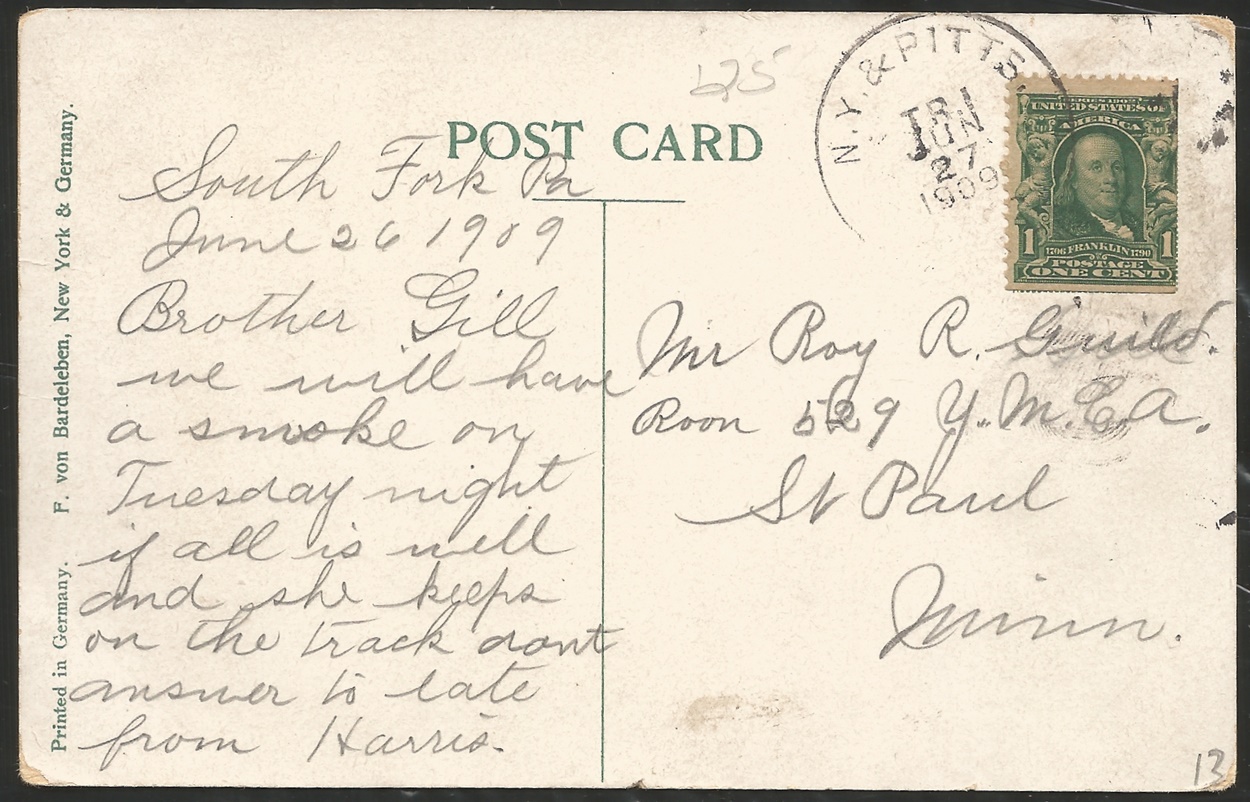 625
N.Y. & PITTS.
TR.1
JUN
27
1909
SERIES 1902
UNITED STATES OF
AMERICA
1 1706 FRANKLIN 1790 1
POSTAGE
ONE CENT
POST CARD
South Fork Pa
June 26 1909
Brother Gill
we will have
a smoke on
Tuesday night
if all is well
and she keeps
on the track dont
answer to late
from Harris.
Mr Roy R. Guild.
Roon 529 Y.M.C.A.
St Paul
Minn.
13
Printed in Germany. F. von Bardeleben, New York & Germany.